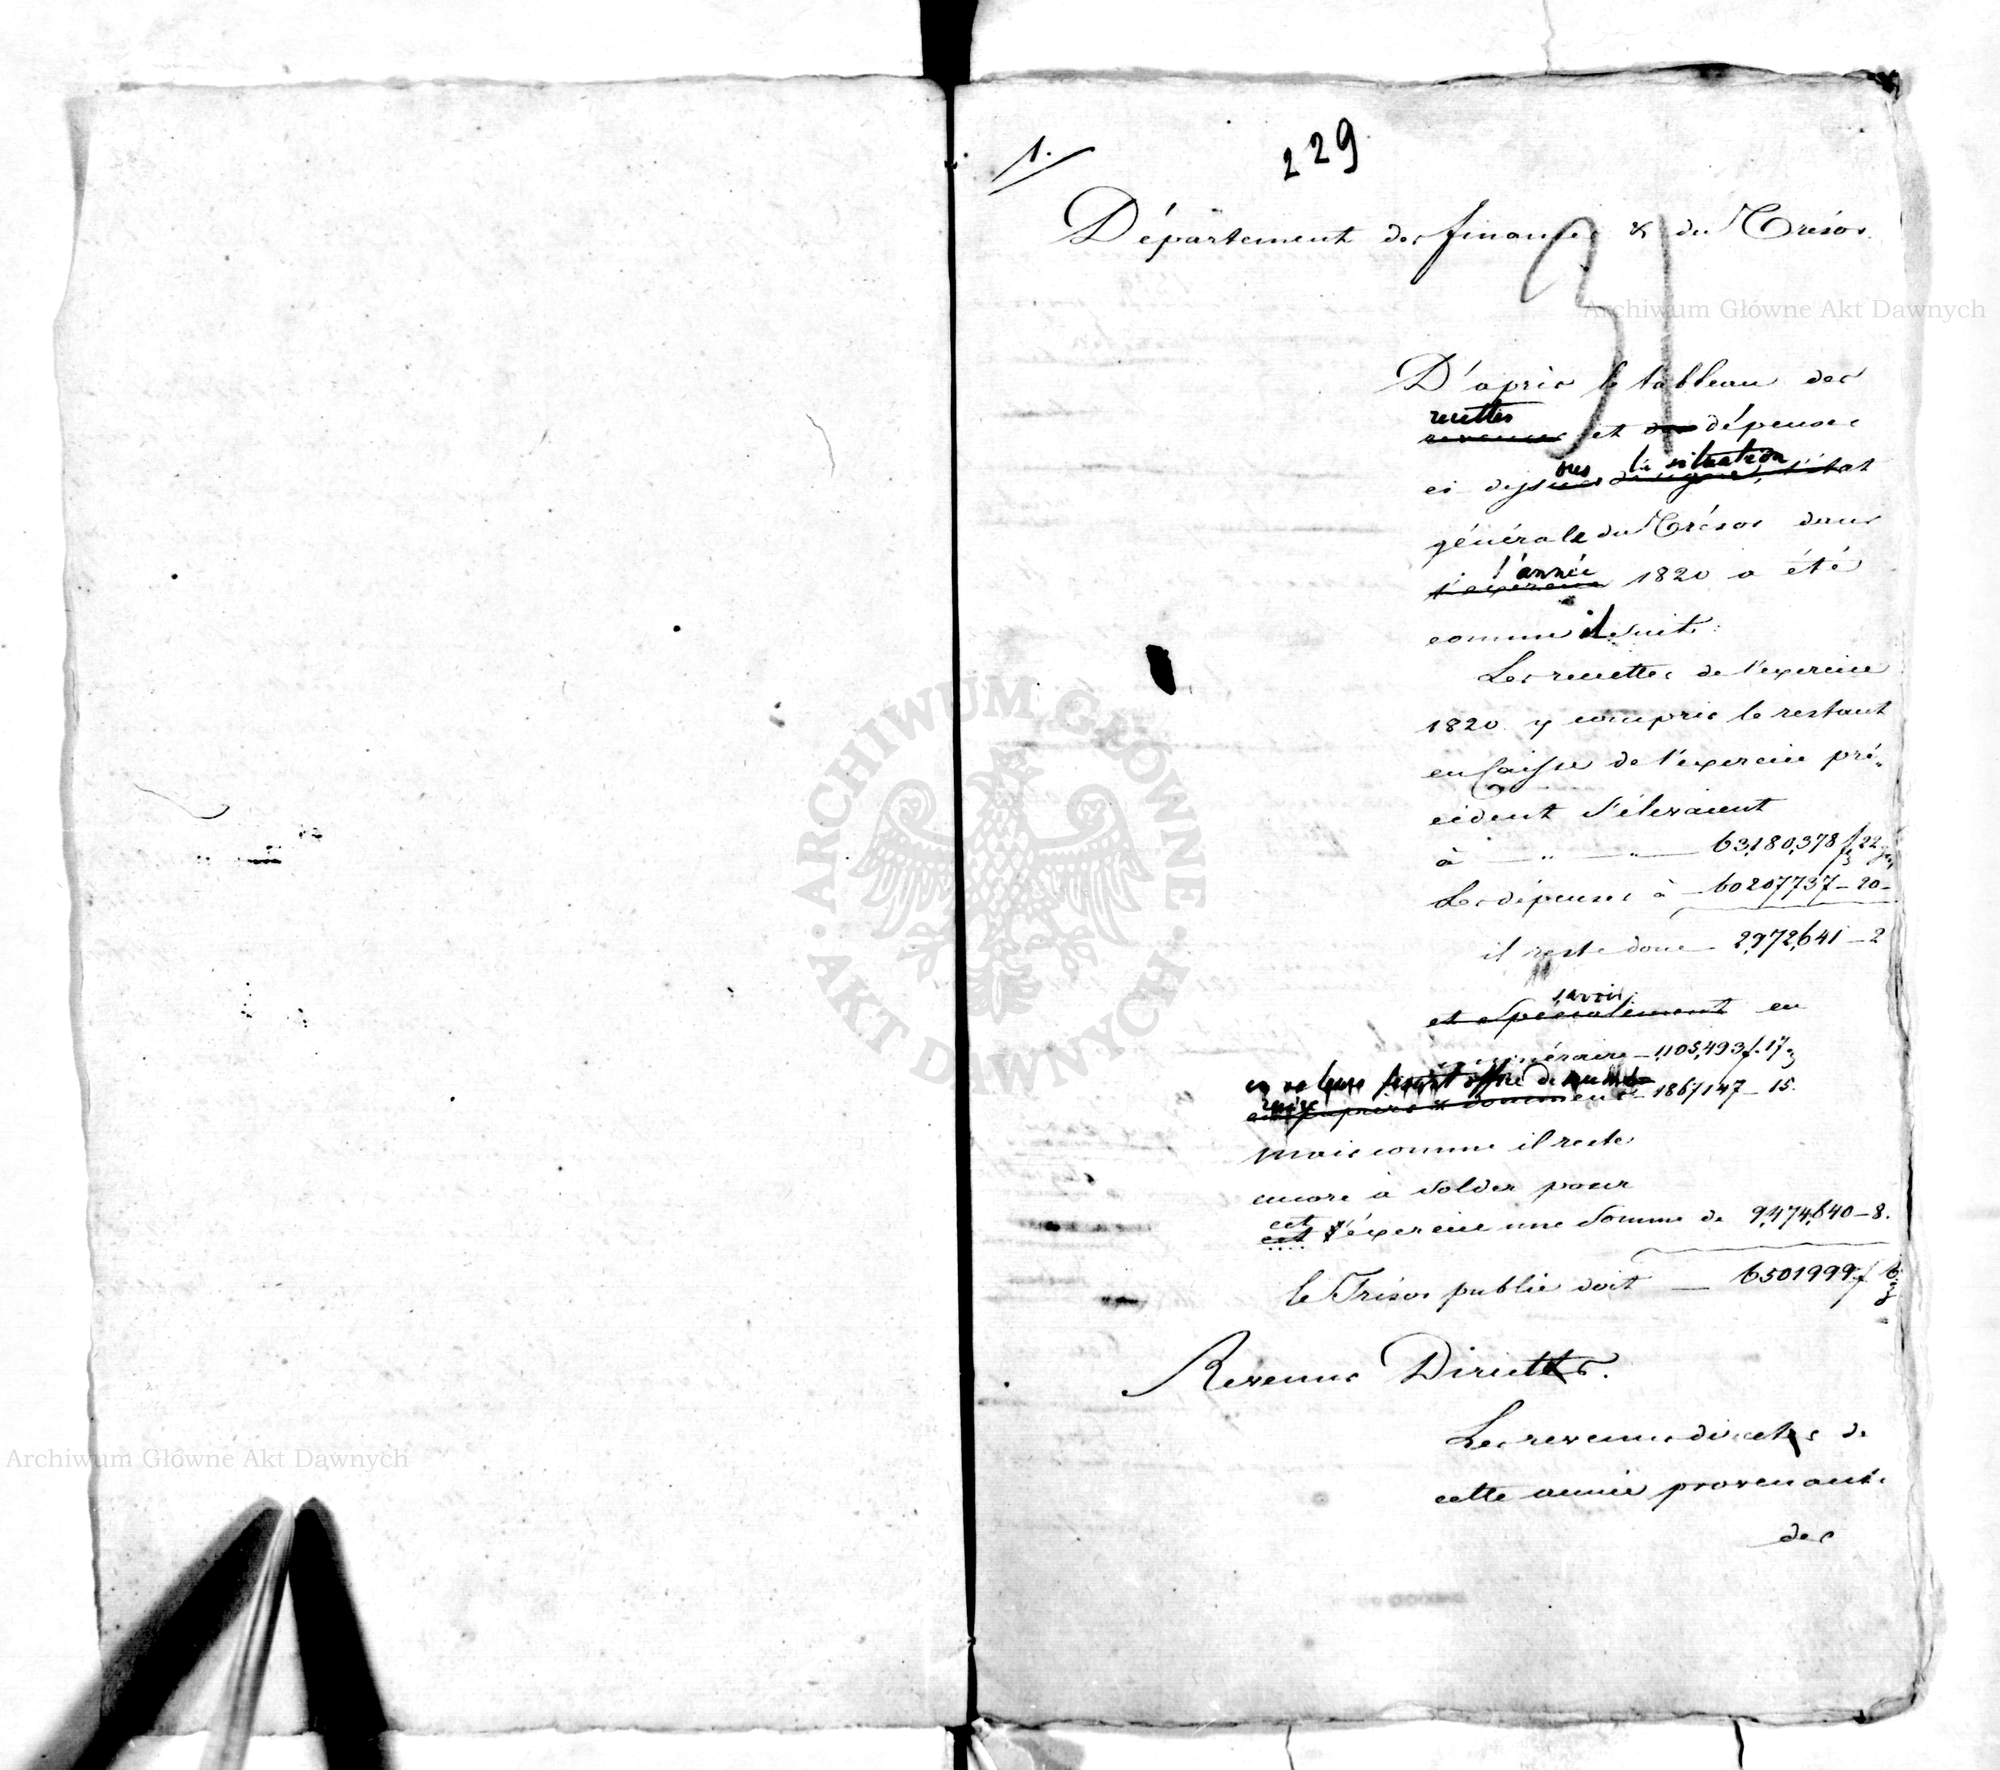 1.
229
Département des finances & du Trésor
31
Archiwum Główne Akt Dawnych
D'après le tableau des
recettes
revenues et des dépenses
la situation
ci dessus l'état
générale du Trésor dans
l'année
l'exercice 1820 a été
comme il suit:
Les recettes de l'exercice
1820 y compris le restant
en Caisse de l'exercice pré-
cédent s'élevaient
à — " — " — 63,180,378 f 22 gr
Les dépenses à — 60207737 — 20 —
il reste donc — 2,972,641 — 2
savoir:
et spécialement en
numéraire — 1,105,493 f. 17 g
en valeurs faisant office de numé-
raire
en papiers & documens — 1867147 — 15.
mais comme il reste
encore à solder pour
cet
cet l'éxercice une somme de 9,474,640 — 8.
le Trésor public doit — 6501999 f 6 g
Revenus Directes.
Les revenus directes de
cette année provenant
des
ARCHIWUM GŁÓWNE
AKT DAWNYCH
Archiwum Główne Akt Dawnych